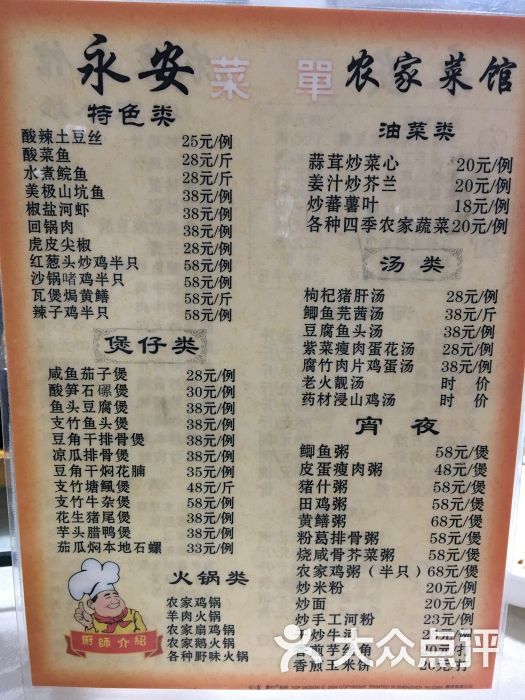 永安 菜單 农家菜馆
特色类
酸辣土豆丝 25元/例
酸菜鱼 28元/斤
水煮鲩鱼 28元/斤
美极山坑鱼 38元/例
椒盐河虾 38元/例
回锅肉 38元/例
虎皮尖椒 28元/例
红葱头炒鸡半只 58元/例
沙锅啫鸡半只 58元/例
瓦煲焗黄鳝 58元/斤
辣子鸡半只 58元/例
煲仔类
咸鱼茄子煲 28元/例
酸笋石螺煲 30元/例
鱼头豆腐煲 38元/例
支竹鱼头煲 38元/例
豆角干排骨煲 38元/例
凉瓜排骨煲 38元/例
豆角干焖花腩 35元/例
支竹塘鲺煲 48元/斤
支竹牛杂煲 58元/例
花生猪尾煲 38元/例
芋头腊鸭煲 38元/例
茄瓜焖本地石螺 33元/例
火锅类
农家鸡锅
羊肉火锅
农家扇鸡锅
农家鹅火锅
各种野味火锅
厨師介紹
油菜类
蒜茸炒菜心 20元/例
姜汁炒芥兰 20元/例
炒蕃薯叶 18元/例
各种四季农家蔬菜20元/例
汤类
枸杞猪肝汤 28元/例
鲫鱼芫茜汤 38元/斤
豆腐鱼头汤 38元/例
紫菜瘦肉蛋花汤 28元/例
腐竹肉片鸡蛋汤 38元/例
老火靓汤 时价
药材浸山鸡汤 时价
宵夜
鲫鱼粥 58元/煲
皮蛋瘦肉粥 48元/煲
猪什粥 58元/煲
田鸡粥 58元/煲
黄鳝粥 68元/煲
粉葛排骨粥 58元/煲
烧咸骨芥菜粥 58元/煲
农家鸡粥（半只）68元/煲
炒米粉 20元/例
炒面 20元/例
炒手工河粉 23元/例
炒牛河
煎芋丝角 20元/打
香煎玉米饼 20元/打
大众点评